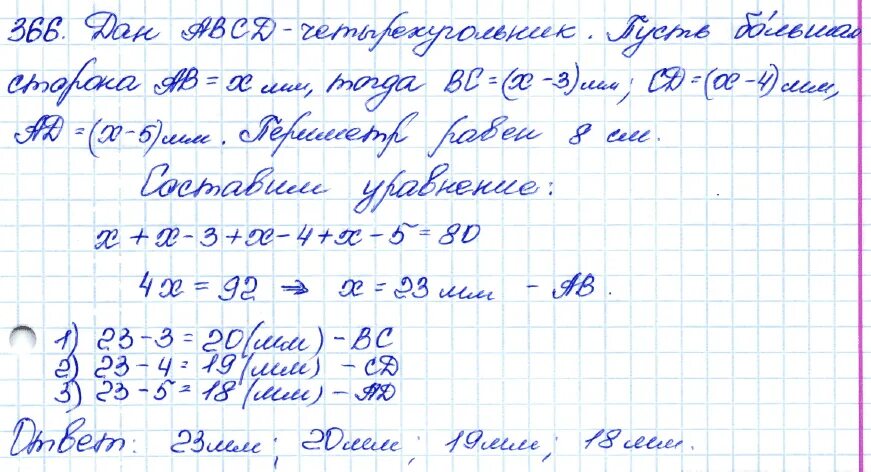 366. Дан ABCD - четырехугольник. Пусть бо́льшая
сторона AB = x мм, тогда BC = (x - 3) мм; CD = (x - 4) мм,
AD = (x - 5) мм. Периметр равен 8 см.
Составим уравнение:
x + x - 3 + x - 4 + x - 5 = 80
4x = 92 ⇒ x = 23 мм - AB.
1) 23 - 3 = 20 (мм) - BC
2) 23 - 4 = 19 (мм) - CD
3) 23 - 5 = 18 (мм) - AD
Ответ: 23 мм; 20 мм; 19 мм; 18 мм.